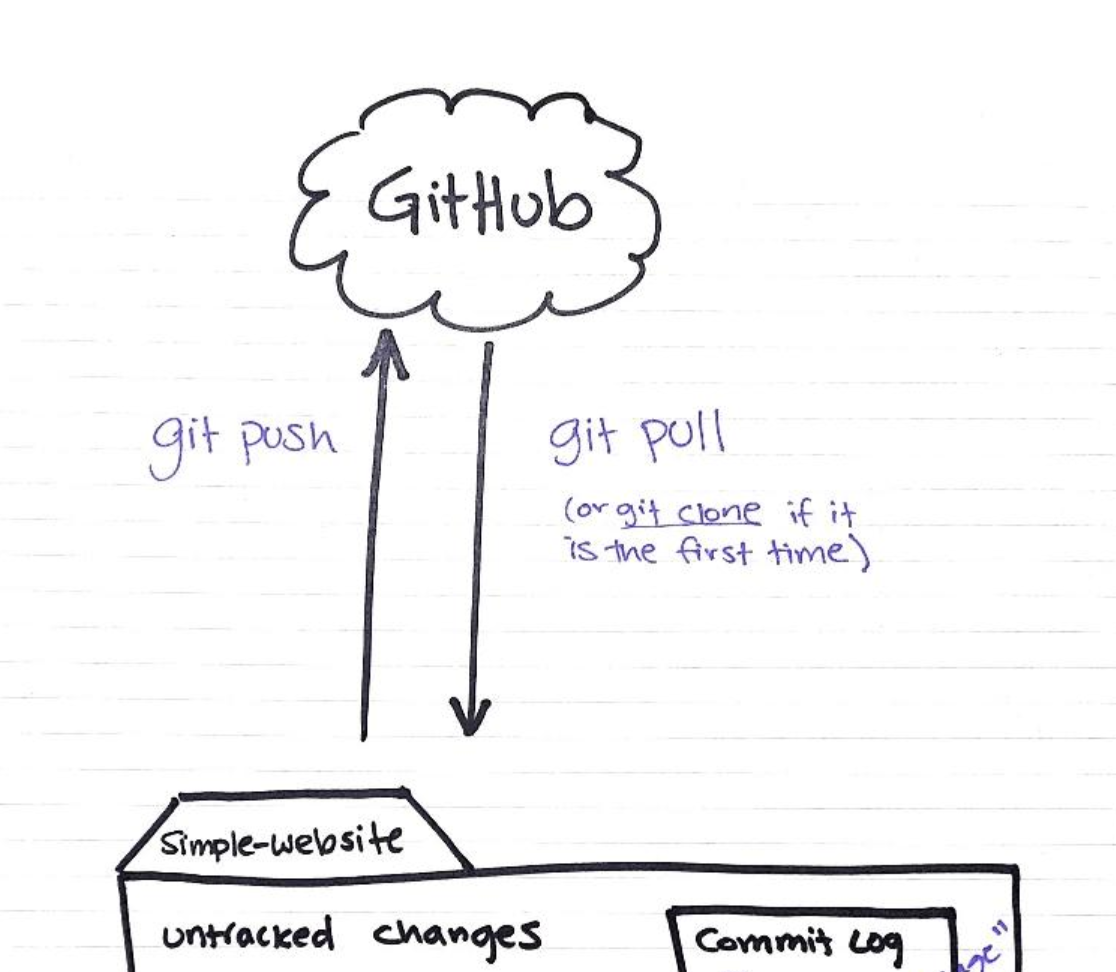 GitHub
git push
git pull
(or git clone if it
is the first time)
Simple-website
untracked changes
Commit Log